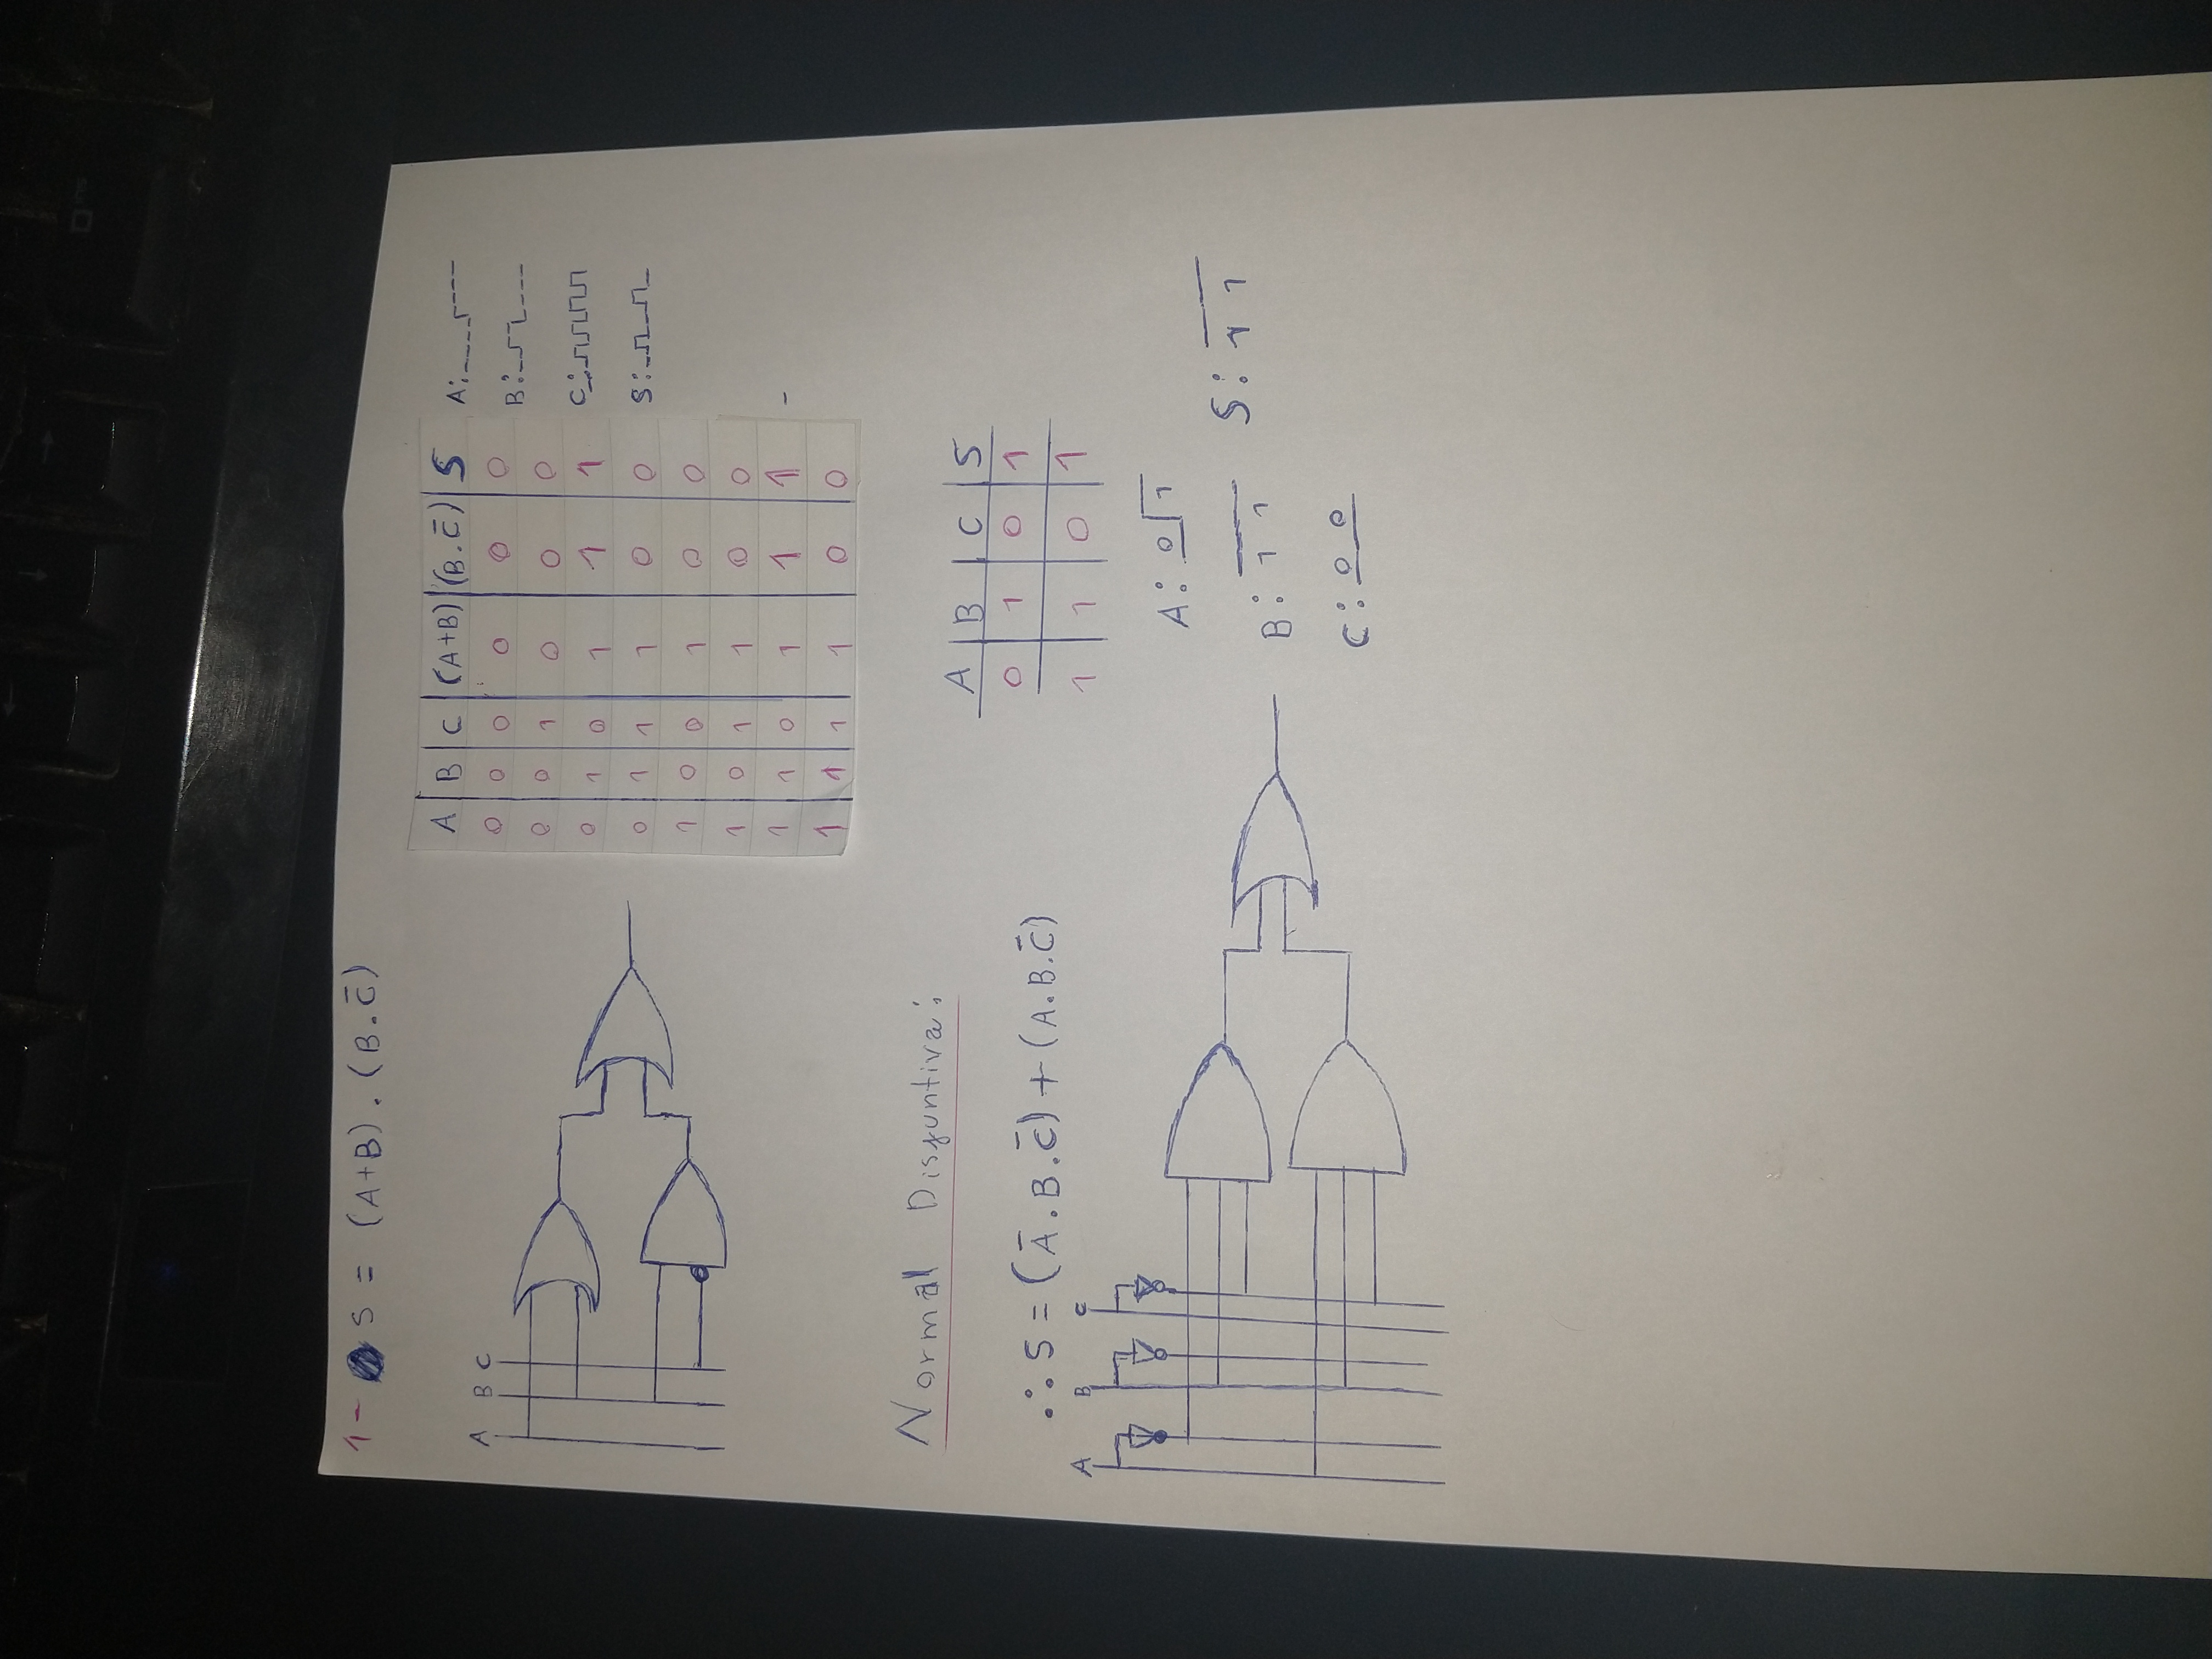 1- S = (A+B) . (B.C̄)
A B C
A B C (A+B) (B.C̄) S
0 0 0 0 0 0
0 0 1 0 0 0
0 1 0 1 1 1
0 1 1 1 0 0
1 0 0 1 0 0
1 0 1 1 0 0
1 1 0 1 1 1
1 1 1 1 0 0
A:
B:
C:
S:
Normal Disjuntiva:
∴ S = (Ā.B.C̄) + (A.B.C̄)
A B C
A B C S
0 1 0 1
1 1 0 1
A: 0 1
B: 1 1
S: 1 1
C: 0 0